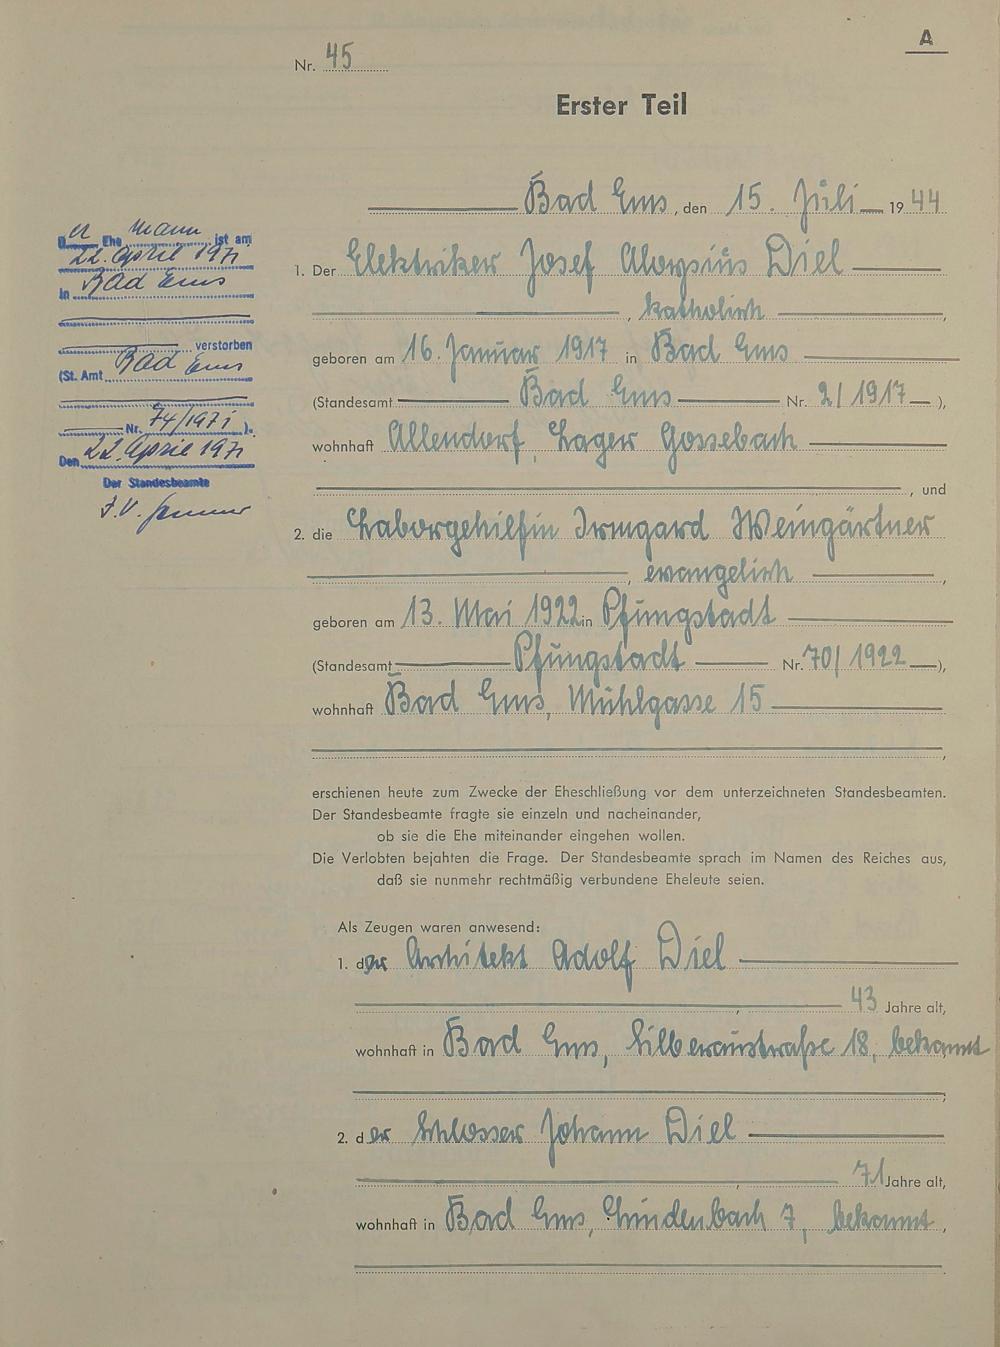 A
Nr. 45
Erster Teil
Bad Ems, den 15. Juli 1944
1. Der Elektriker Josef Aloysius Diel
, katholisch,
geboren am 16. Januar 1917 in Bad Ems
(Standesamt Bad Ems Nr. 2/1917),
wohnhaft Allendorf, Lager Gossebach
, und
2. die Laborgehilfin Irmgard Weingärtner
, evangelisch,
geboren am 13. Mai 1922 in Pfungstadt
(Standesamt Pfungstadt Nr. 70/1922),
wohnhaft Bad Ems, Mühlgasse 15
,
erschienen heute zum Zwecke der Eheschließung vor dem unterzeichneten Standesbeamten.
Der Standesbeamte fragte sie einzeln und nacheinander,
ob sie die Ehe miteinander eingehen wollen.
Die Verlobten bejahten die Frage. Der Standesbeamte sprach im Namen des Reiches aus,
daß sie nunmehr rechtmäßig verbundene Eheleute seien.
Als Zeugen waren anwesend:
1. der Architekt Adolf Diel
, 43 Jahre alt,
wohnhaft in Bad Ems, Silberaustraße 18, bekannt
;
2. der Schlosser Johann Diel
, 71 Jahre alt,
wohnhaft in Bad Ems, Lindenbach 7, bekannt,
Der Ehemann ist am
22. April 1971
in Bad Ems
verstorben
(St. Amt Bad Ems
Nr. 74/1971).
Den 22. April 1971
Der Standesbeamte
I.V.